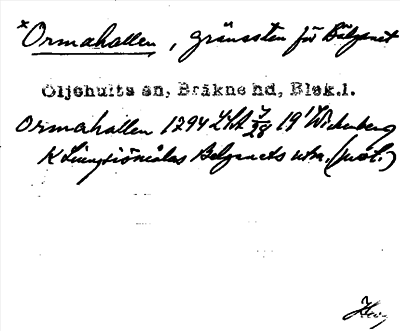 × Ormahallen, gränssten för Bälganet
Öljehults sn, Bräkne hd, Blek.l.
Ormahallen 1794 LSA 7/28 19' Wickenberg
K Ljungsjömåla Belganets utm. (not.)